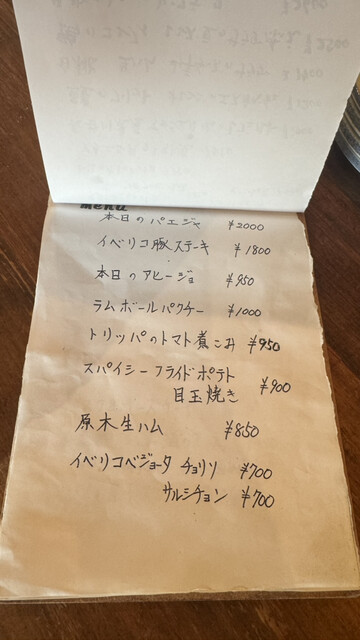 menu
本日のパエジャ ¥2000
イベリコ豚ステーキ ¥1800
本日のアヒージョ ¥950
ラムボールパクチー ¥1000
トリッパのトマト煮こみ ¥950
スパイシーフライドポテト
目玉焼き ¥900
原木生ハム ¥850
イベリコベジョータ チョリソ ¥700
サルシチョン ¥700